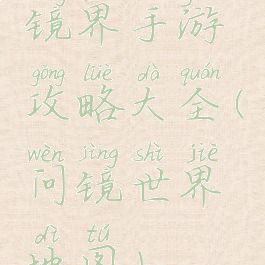 镜界手游
gōng lüè dà quán
攻略大全(
wèn jìng shì jiè
问镜世界
dì tú
地图)